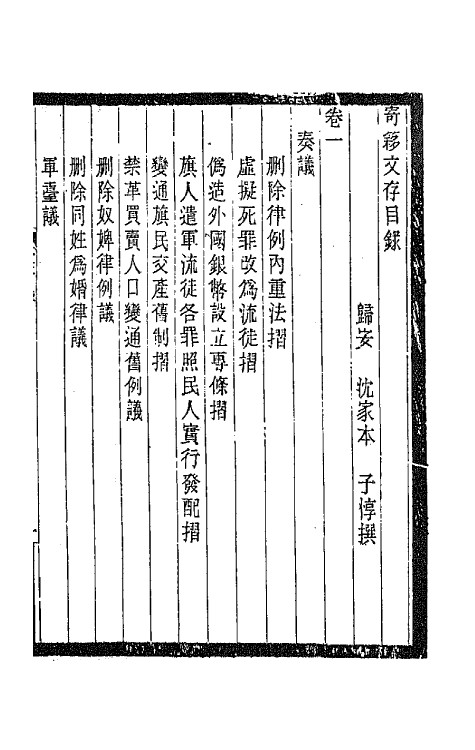 寄簃文存目錄
歸安 沈家本 子惇撰
卷一
奏議
刪除律例內重法摺
虛擬死罪改爲流徒摺
僞造外國銀幣設立專條摺
旗人遣軍流徒各罪照民人實行發配摺
變通旗民交產舊制摺
禁革買賣人口變通舊例議
刪除奴婢律例議
刪除同姓爲婚律議
軍臺議